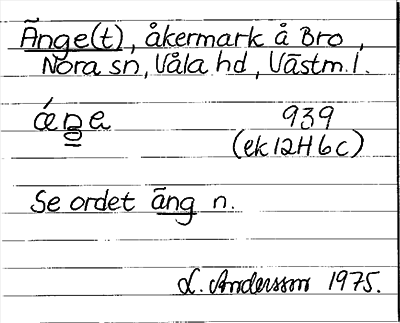 Änge(t), åkermark å Bro,
Nora sn, Våla hd, Västm. l.
939
(ek 12H 6c)
Se ordet äng n.
L. Andersson 1975.